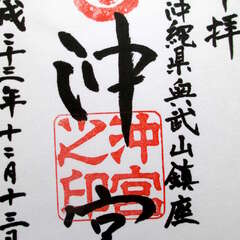 拝
沖縄県奥武山鎮座
沖宮
沖宮之印
成二十三年十二月十三日